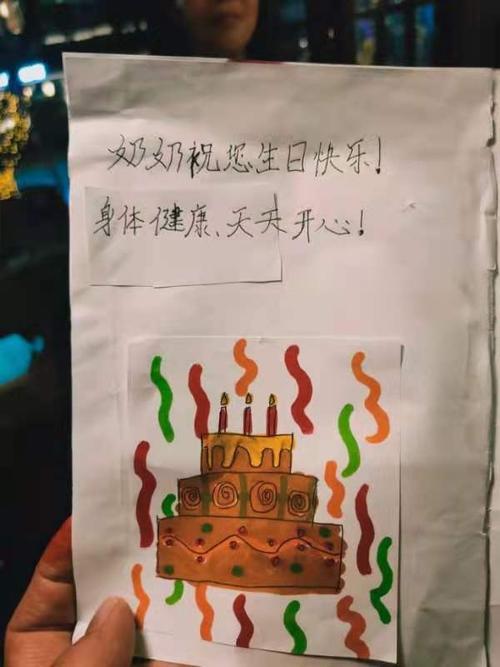 奶奶祝您生日快乐!
身体健康、天天开心!